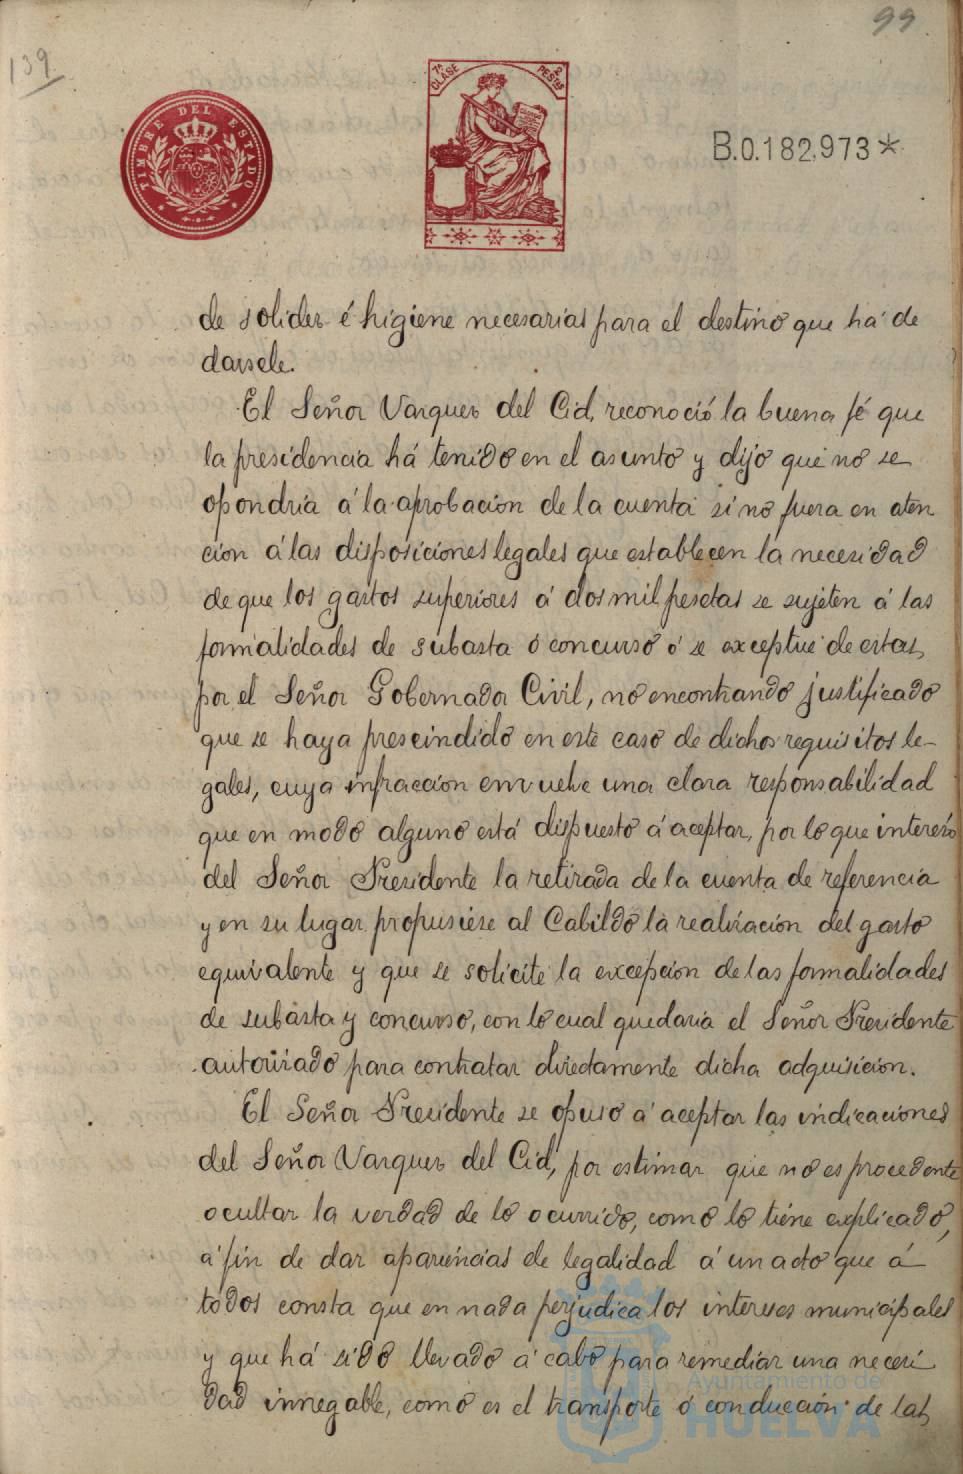 99
139
TIMBRE DEL ESTADO
7ª CLASE
2 PESTAS
B.0.182,973*
de solidez é higiene necesarias para el destino que há de
darsele.
El Señor Vazquez del Cid, reconoció la buena fé que
la presidencia há tenido en el asunto y dijo que no se
opondria á la aprobacion de la cuenta si no fuera en aten
cion á las disposiciones legales que establecen la necesidad
de que los gastos superiores á dos mil pesetas se sujeten á las
formalidades de subasta ó concurso ó se exceptue de estas
por el Señor Gobernador Civil, no encontrando justificado
que se haya prescindido en este caso de dichos requisitos le-
gales, cuya infraccion envuelve una clara responsabilidad
que en modo alguno está dispuesto á aceptar, por lo que interesó
del Señor Presidente la retirada de la cuenta de referencia
y en su lugar propusiese al Cabildo la realizacion del gasto
equivalente y que se solicite la excepcion de las formalidades
de subasta y concurso, con lo cual quedaria el Señor Presidente
autorizado para contratar directamente dicha adquisicion.
El Señor Presidente se opuso á aceptar las indicaciones
del Señor Vazquez del Cid, por estimar que no es procedente
ocultar la verdad de lo ocurrido, como lo tiene explicado,
á fin de dar apariencias de legalidad á un acto que á
todos consta que en nada perjudica los intereses municipales
y que há sido llevado á cabo para remediar una necesi
dad innegable, como es el transporte ó conducción de las
Ayuntamiento de
HUELVA